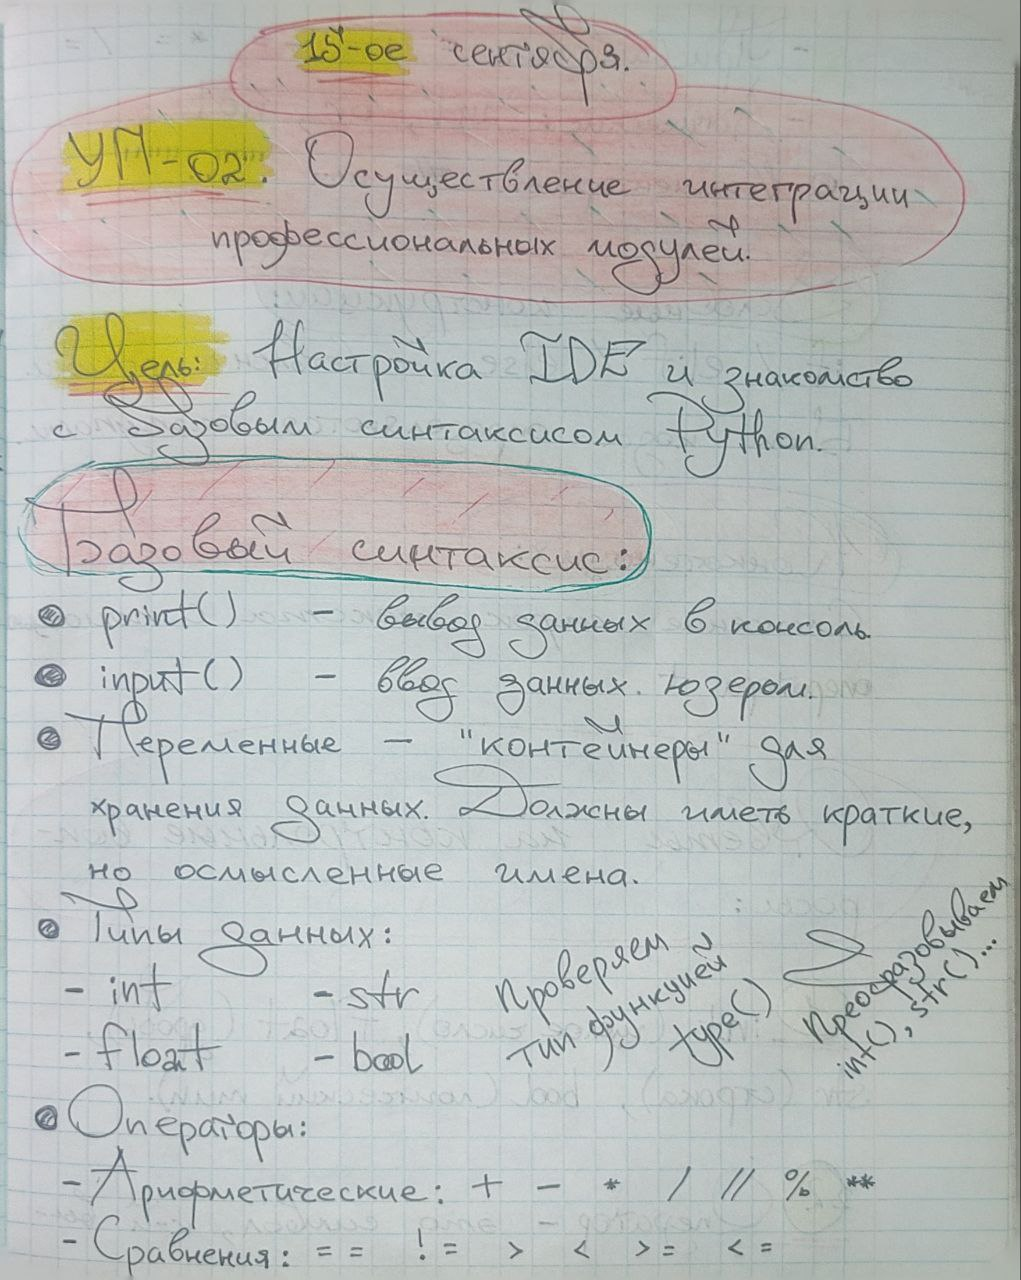 15-ое сентября.
УП-02. Осуществление интеграции
профессиональных модулей.
Цель: Настройка IDE и знакомство
с базовым синтаксисом Python.
Базовый синтаксис:
print() - вывод данных в консоль.
input() - ввод данных юзером.
Переменные - "контейнеры" для
хранения данных. Должны иметь краткие,
но осмысленные имена.
Типы данных:
- int - str
- float - bool
Проверяем
тип функцией
type()
Преобразовываем
int(), str()...
Операторы:
- Арифметические: + - * / // % **
- Сравнения: == != > < >= <=